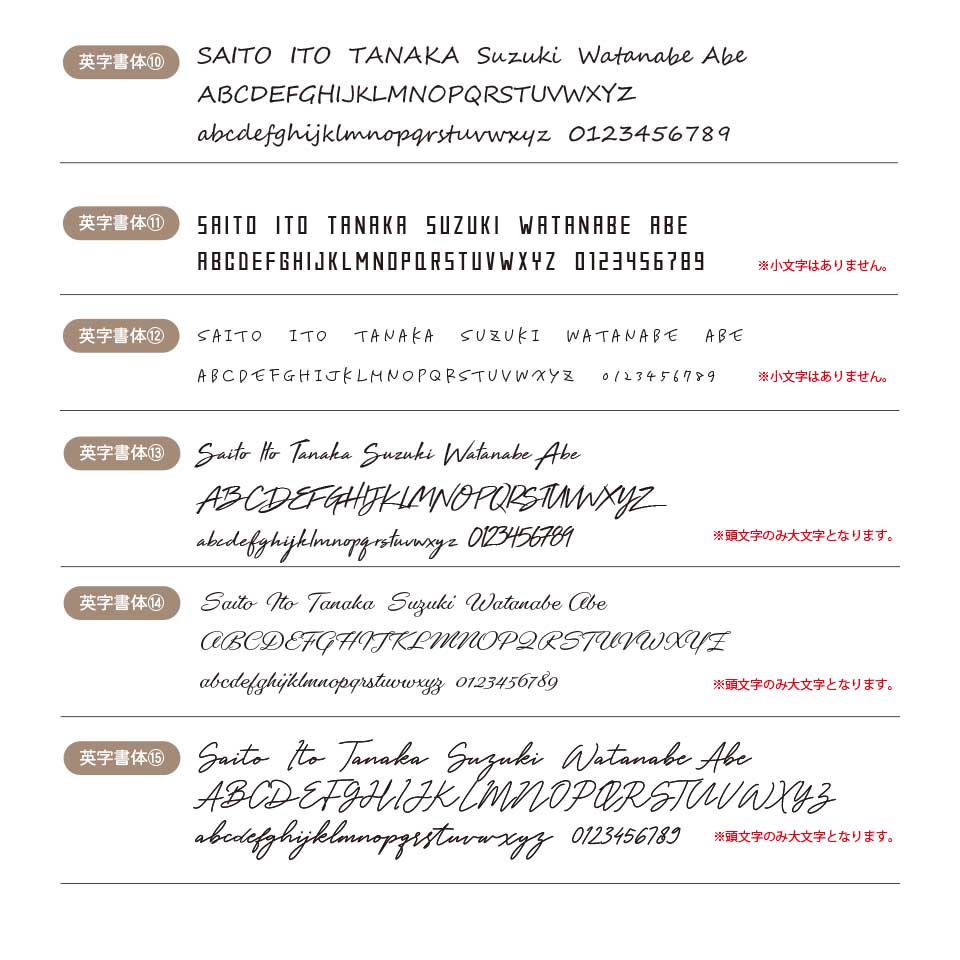 英字書体⑩
SAITO ITO TANAKA Suzuki Watanabe Abe
ABCDEFGHIJKLMNOPQRSTUVWXYZ
abcdefghijklmnopqrstuvwxyz 0123456789
英字書体⑪
SAITO ITO TANAKA SUZUKI WATANABE ABE
ABCDEFGHIJKLMNOPQRSTUVWXYZ 0123456789
※小文字はありません。
英字書体⑫
SAITO ITO TANAKA SUZUKI WATANABE ABE
ABCDEFGHIJKLMNOPQRSTUVWXYZ 0123456789
※小文字はありません。
英字書体⑬
Saito Ito Tanaka Suzuki Watanabe Abe
ABCDEFGHIJKLMNOPQRSTUVWXYZ
abcdefghijklmnopqrstuvwxyz 0123456789
※頭文字のみ大文字となります。
英字書体⑭
Saito Ito Tanaka Suzuki Watanabe Abe
ABCDEFGHIJKLMNOPQRSTUVWXYZ
abcdefghijklmnopqrstuvwxyz 0123456789
※頭文字のみ大文字となります。
英字書体⑮
Saito Ito Tanaka Suzuki Watanabe Abe
ABCDEFGHIJKLMNOPQRSTUVWXYZ
abcdefghijklmnopqrstuvwxyz 0123456789
※頭文字のみ大文字となります。